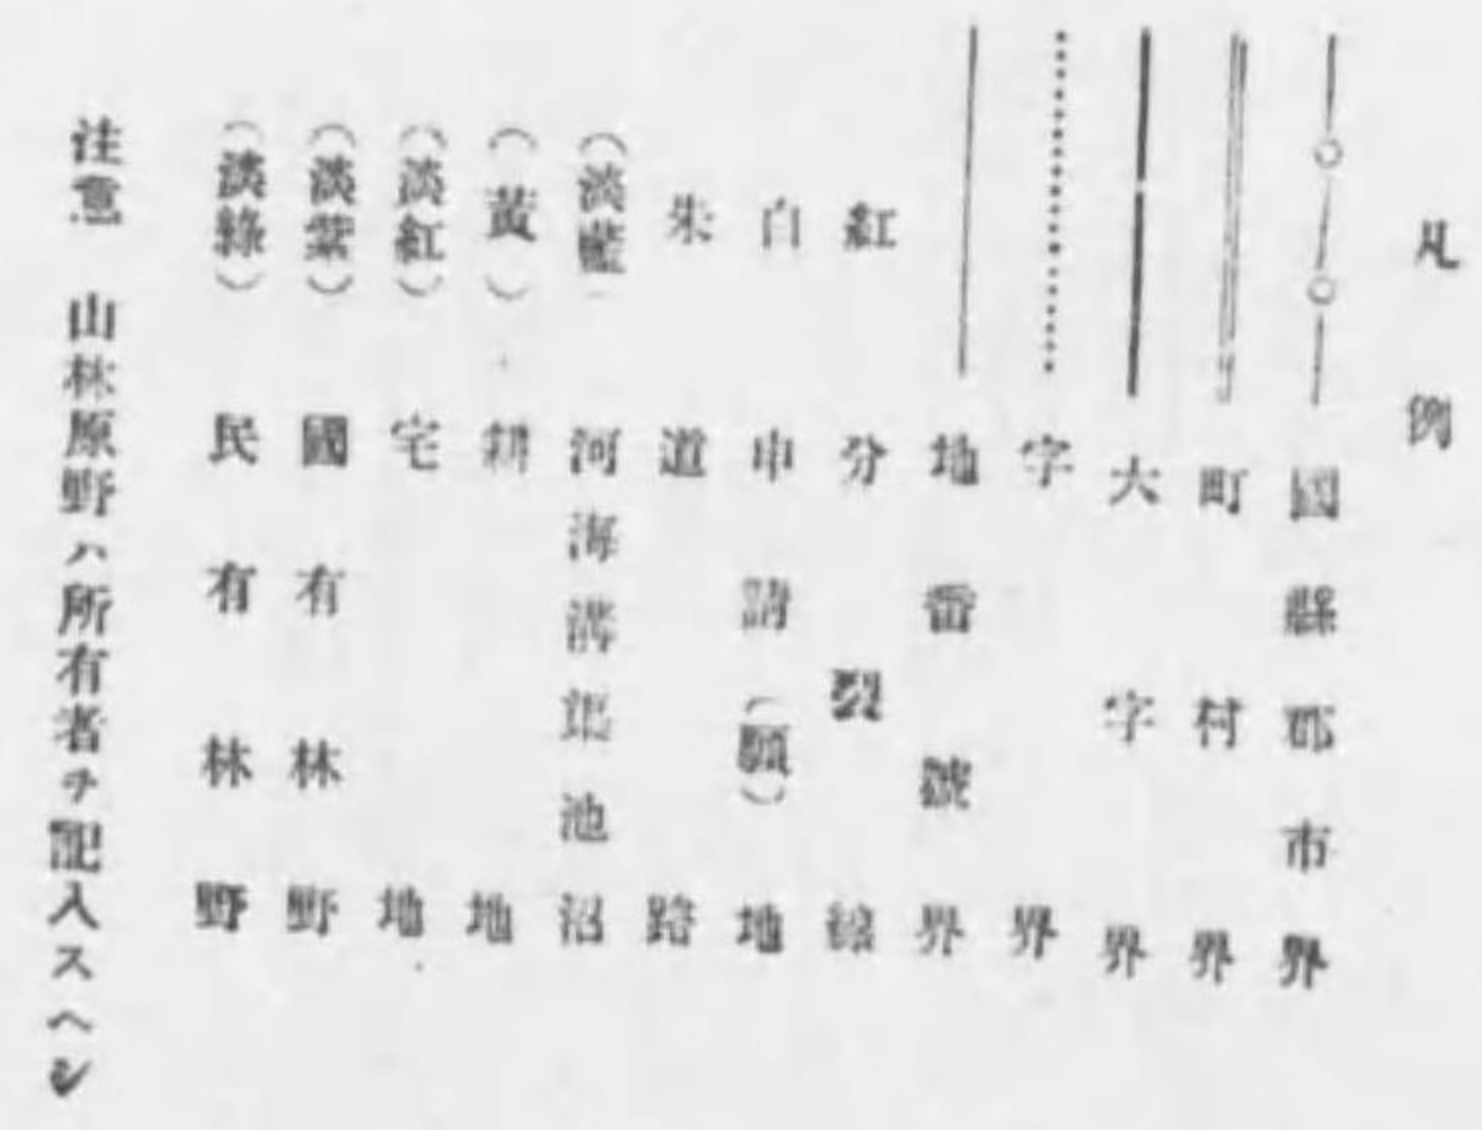 凡例
國縣郡市界
町村界
大字界
字界
地番號界
紅 分裂線
白 申請(願)地
朱 道路
(淡藍) 河海溝堤池沼
(黃) 耕地
(淡紅) 宅地
(淡紫) 國有林野
(淡綠) 民有林野
注意 山林原野ハ所有者ヲ記入スヘシ